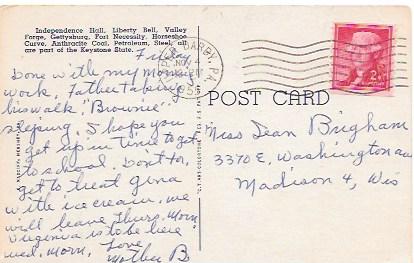 Independence Hall, Liberty Bell, Valley
Forge, Gettysburg, Fort Necessity, Horseshoe
Curve, Anthracite Coal, Petroleum, Steel, all
are part of the Keystone State.
Friday
Done with my morning
work, Father taking
his walk, "Brownie"
sleeping. I hope you
get up in time to get
to school. Don't for
get to treat Gina
with ice cream, we
will leave Thurs. Morn,
Virginia is to be here
wed, Morn, Love
Mother B
DARBY, PA.
NOV 4
POST CARD
2¢
Miss Jean Brigham
3370 E, Washington ave
Madison 4, Wis